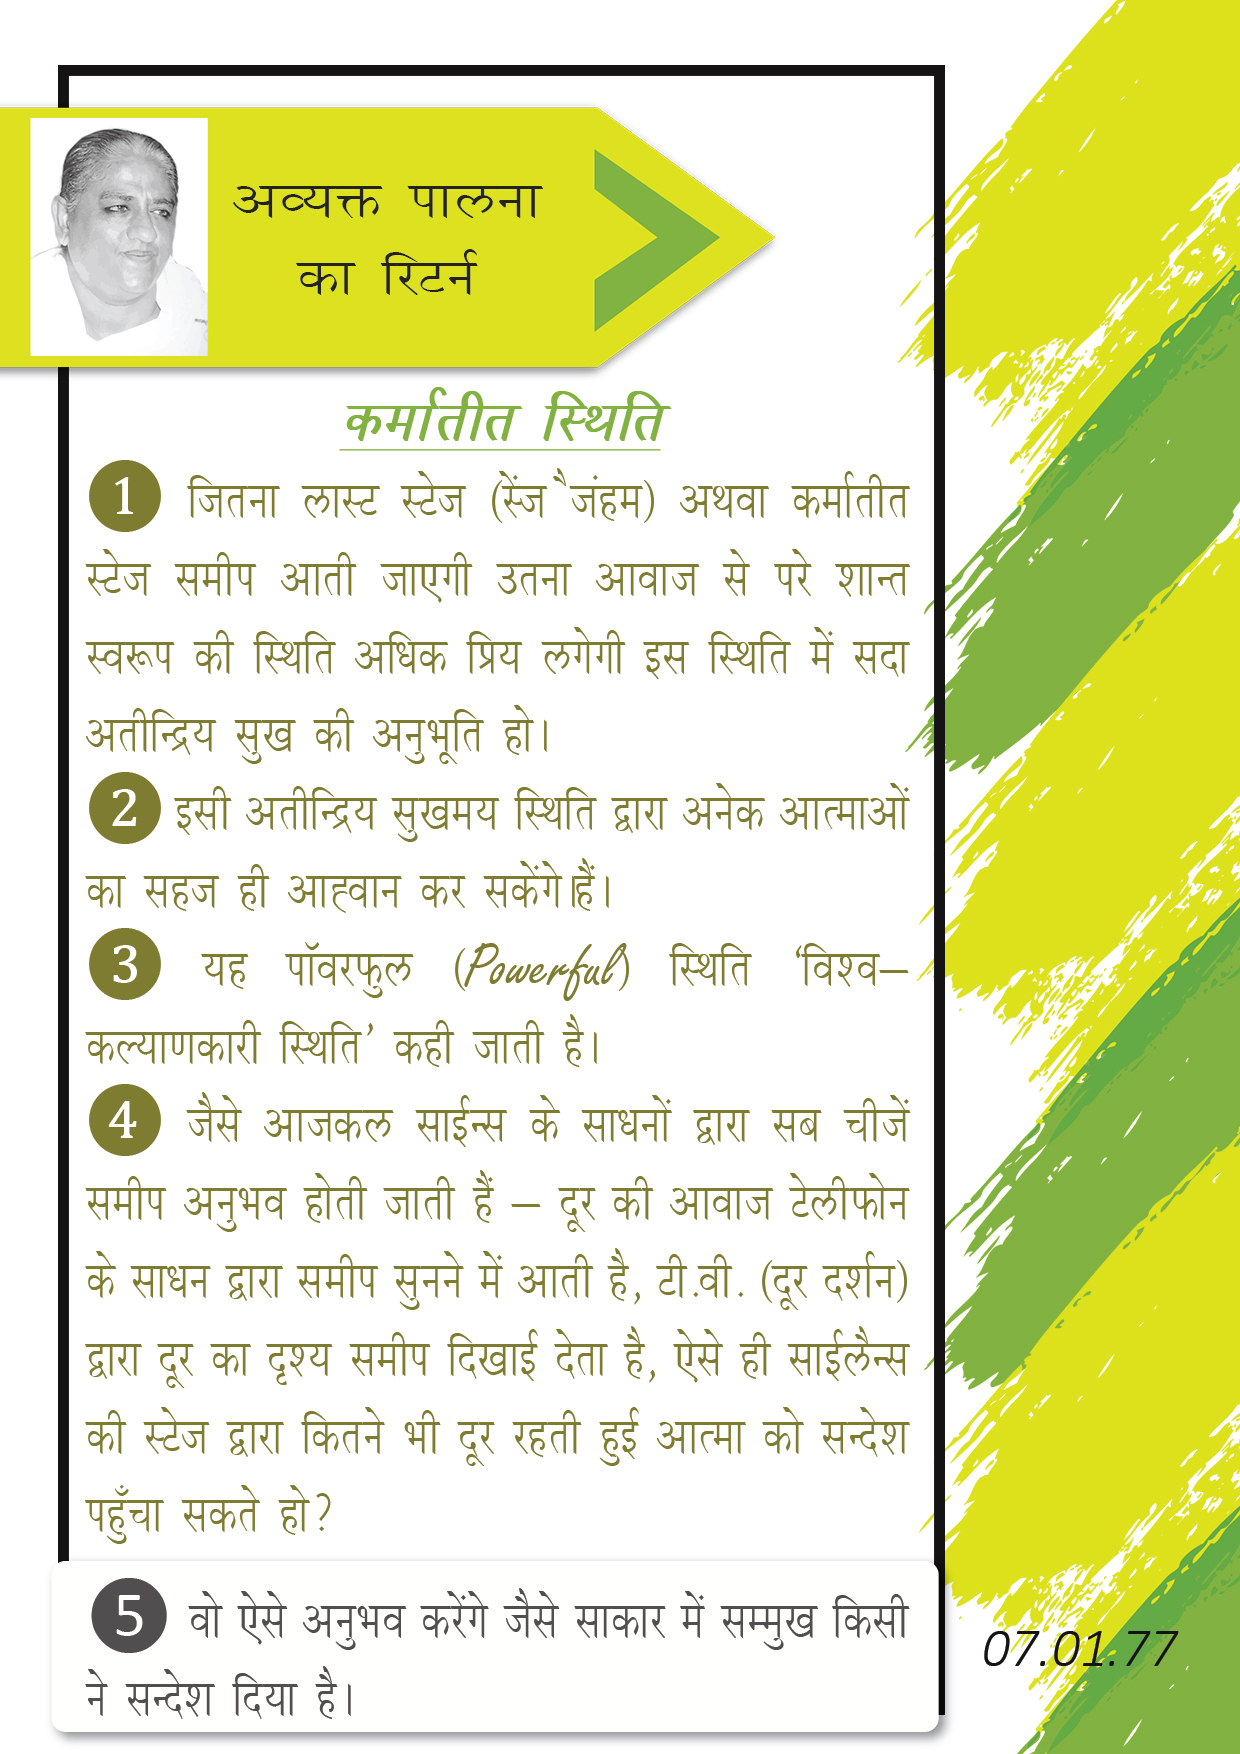 अव्यक्त पालना
का रिटर्न
कर्मातीत स्थिति
1 जितना लास्ट स्टेज (स्ेंज ैजंहम) अथवा कर्मातीत
स्टेज समीप आती जाएगी उतना आवाज से परे शान्त
स्वरूप की स्थिति अधिक प्रिय लगेगी इस स्थिति में सदा
अतीन्द्रिय सुख की अनुभूति हो।
2 इसी अतीन्द्रिय सुखमय स्थिति द्वारा अनेक आत्माओं
का सहज ही आह्वान कर सकेंगे।हैं।
3 यह पॉवरफुल (Powerful) स्थिति ‘विश्व–
कल्याणकारी स्थिति’ कही जाती है।
4 जैसे आजकल साईन्स के साधनों द्वारा सब चीजें
समीप अनुभव होती जाती हैं – दूर की आवाज टेलीफोन
के साधन द्वारा समीप सुनने में आती है, टी.वी. (दूर दर्शन)
द्वारा दूर का दृश्य समीप दिखाई देता है, ऐसे ही साईलैन्स
की स्टेज द्वारा कितने भी दूर रहती हुई आत्मा को सन्देश
पहुँचा सकते हो?
5 वो ऐसे अनुभव करेंगे जैसे साकार में सम्मुख किसी
ने सन्देश दिया है।
07.01.77